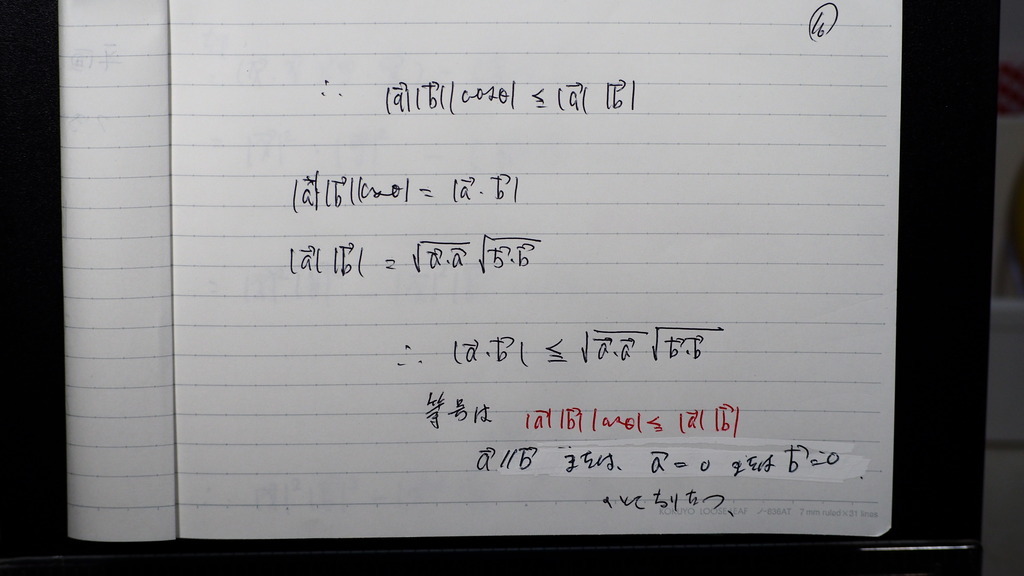 16
∴ |a⃗||b⃗||cosθ| ≦ |a⃗| |b⃗|
|a⃗||b⃗||cosθ| = |a⃗・b⃗|
|a⃗| |b⃗| = √a⃗・a⃗ √b⃗・b⃗
∴ |a⃗・b⃗| ≦ √a⃗・a⃗ √b⃗・b⃗
等号は |a⃗||b⃗||cosθ| ≦ |a⃗| |b⃗|
a⃗ // b⃗ または、a⃗ = 0 または b⃗ = 0
なりたつ、
KOKUYO LOOSE-LEAF ノ-836AT 7 mm ruled×31 lines